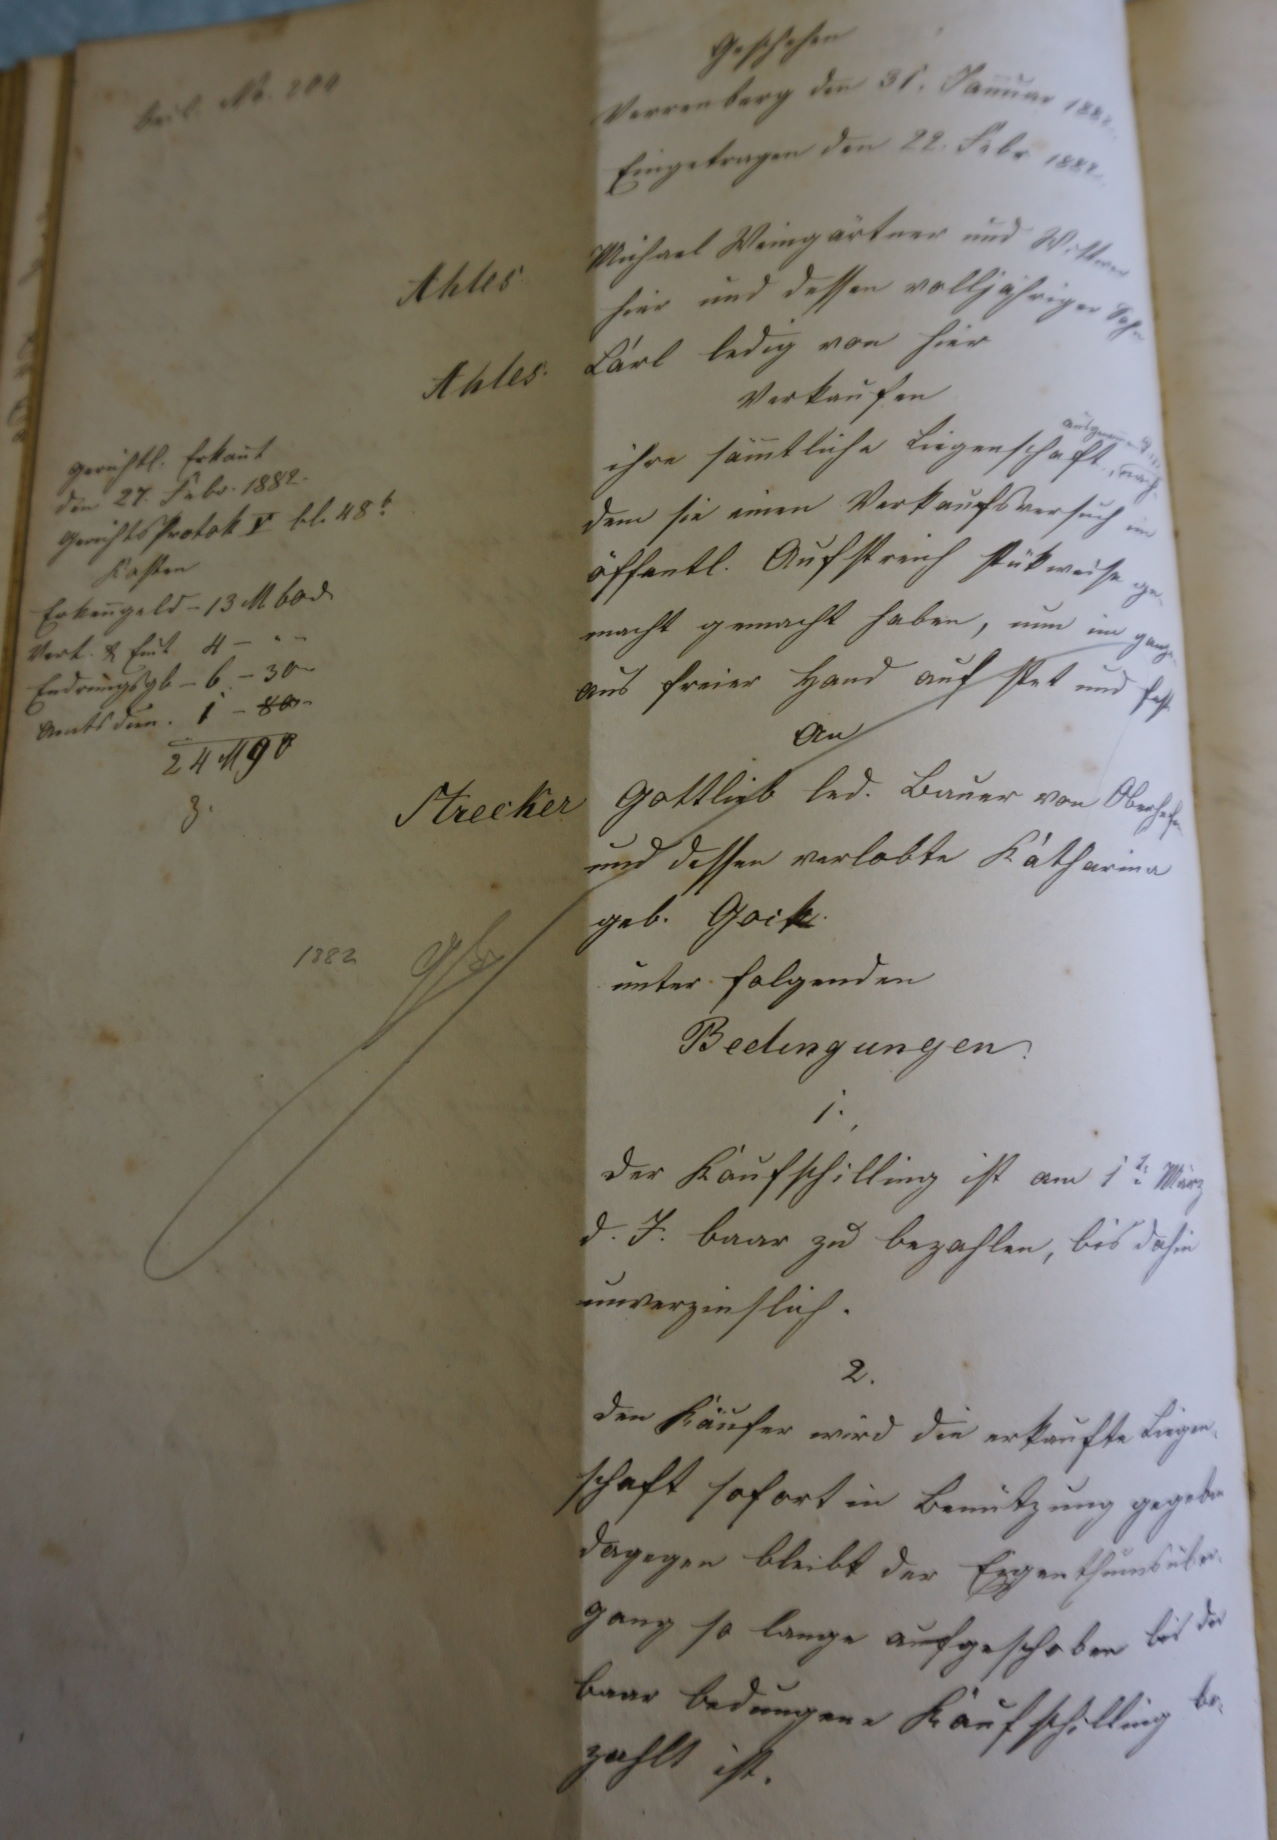 Beil. No. 204
Geschehen
Verrenberg den 31. Januar 1882.
Eingetragen den 22. Febr 1882.
Ahles
Michael Weingärtner und Wittwer
hier und dessen volljähriger Sohn
Ahles.
Carl ledig von hier
Verkaufen
ihre sämtliche Liegenschaft, nach-
dem sie einen Verkaufsversuch im
öffentl. Aufstreich stükweise ge-
macht gemacht haben, nun im ganzen
aus freier Hand auf stet und fest
An
Strecker
Gottlieb led. Bauer von
und dessen verlobte Katharina
geb. Gock.
unter folgenden
Bedingungen.
1.
Der Kaufschilling ist am 1t März
d. J. baar zu bezahlen, bis dahin
unverzinslich.
2.
Den Käufer wird die erkaufte Liegen-
schaft sofort in Benützung gegeben
dagegen bleibt der Eigenthumsüber-
gang so lange aufgeschoben bis der
baar bedungene Kaufschilling be-
zahlt ist.
gerichtl. Erkannt
den 27. Febr. 1882.
Gerichts Protok V bl. 48b
Kosten
Erkenngeld - 13 M 60 d
4 - " -
- 6 - 30
Amtsdien. 1 -
24 M 90
1882